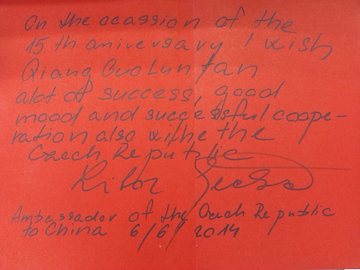 On the ocassion of the
15th aniversary I wish
Qiang Guo Lun Tan
alot of success, good
mood and successful coope-
ration also withe the
Czech Republic
Libor Sečka
Ambassador of the Czech Republic
to China 6/6/2014